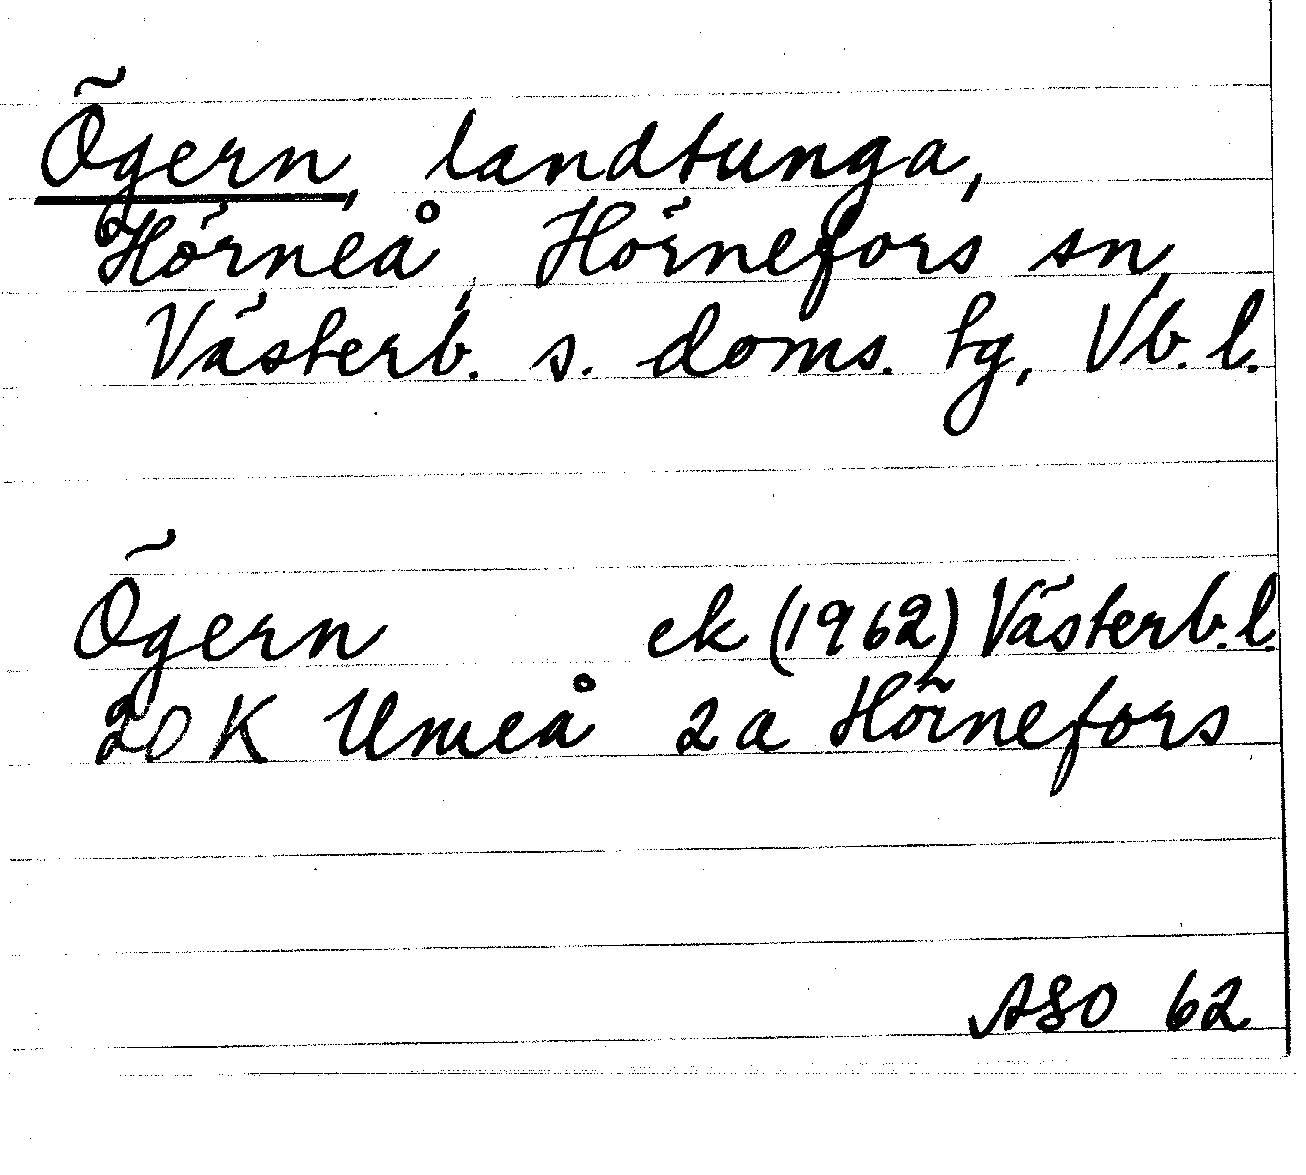 Ögern, landtunga,
Hörneå, Hörnefors sn,
Västerb. s. doms. tg, Vb. l.
Ögern ek (1962) Västerb. l.
20 K Umeå 2a Hörnefors
ASO 62